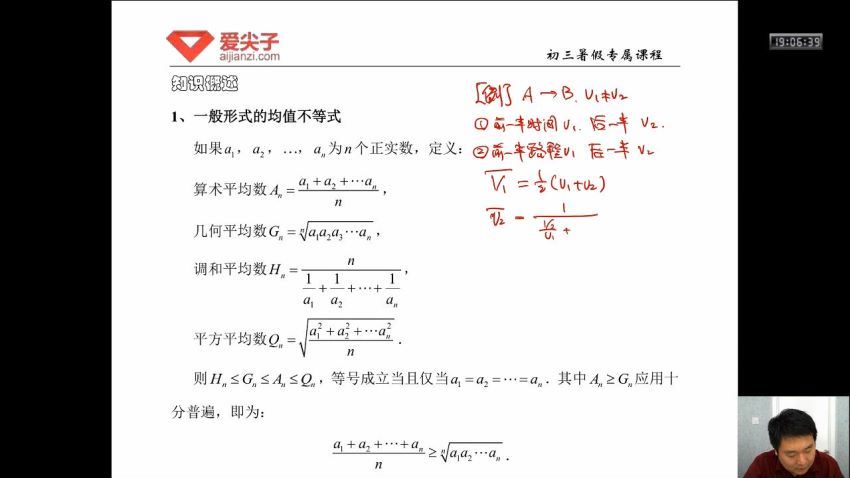 爱尖子
aijianzi.com
初三暑假专属课程
19:06:39
知识概述
1、一般形式的均值不等式
如果a₁，a₂，…，aₙ为n个正实数，定义：
算术平均数Aₙ = (a₁+a₂+⋯aₙ)/n，
几何平均数Gₙ = ⁿ√(a₁a₂a₃⋯aₙ)，
调和平均数Hₙ = n/(1/a₁+1/a₂+⋯+1/aₙ)，
平方平均数Qₙ = √((a₁²+a₂²+⋯aₙ²)/n)．
则Hₙ≤Gₙ≤Aₙ≤Qₙ，等号成立当且仅当a₁=a₂=⋯=aₙ．其中Aₙ≥Gₙ应用十
分普遍，即为：
(a₁+a₂+⋯+aₙ)/n ≥ ⁿ√(a₁a₂⋯aₙ)．
[例] A→B. v₁≠v₂
①前一半时间v₁. 后一半v₂.
②前一半路程v₁ 后一半v₂
V̄₁ = ½(v₁+v₂)
v̄₂ = 1/((1/2)/v₁ +